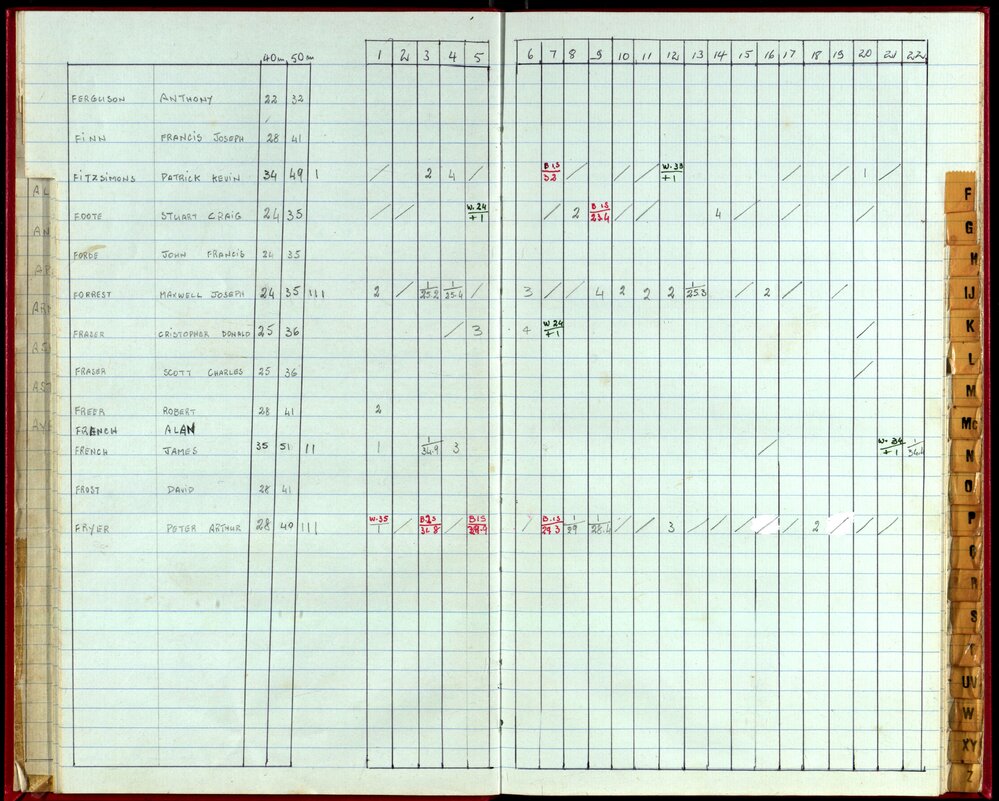 40m 50m 1 2 3 4 5 6 7 8 9 10 11 12 13 14 15 16 17 18 19 20 21 22
FERGUSON ANTHONY 22 32
FINN FRANCIS JOSEPH 28 41
FITZSIMONS PATRICK KEVIN 34 49 1 / 2 4 / B 1S 32 / / / W-33 +1 / / 1 /
FOOTE STUART CRAIG 24 35 / / W. 24 +1 / 2 B 1S 23.4 / / 4 / / /
FORDE JOHN FRANCIS 24 35
FORREST MAXWELL JOSEPH 24 35 111 2 / 1 25.2 1 25.4 / 3 / / 4 2 2 2 1 25.3 / 2 / /
FRAZER CRISTOPHAR DONALD 25 36 / 3 4 W 24 +1 /
FRASER SCOTT CHARLES 25 36 /
FREER ROBERT 28 41 2
FRENCH ALAN
FRENCH JAMES 35 51 11 1 1 34.9 3 / W-34 +1 1
FROST DAVID 28 41
FRYER PETER ARTHUR 28 40 111 W-35 1 / / B1S 28.9 / B.1S 1 29 1 28.4 / / 3 / / / / 2 / /
AL
AN
AP
F
G
H
IJ
K
L
M
Mc
N
O
P
Q
R
S
T
UV
W
XY
Z